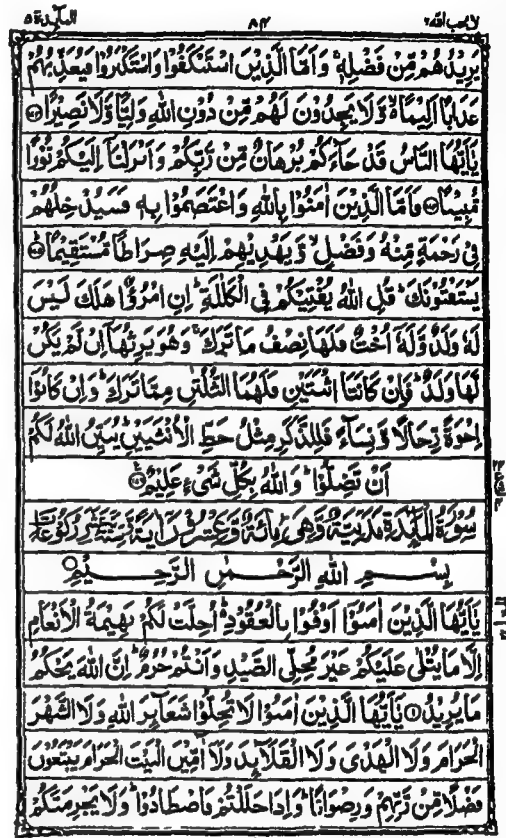 لا يحب الله ٦ ٨٤ المآئدة ٥
يَزِيْدُهُمْ مِّنْ فَضْلِهٖ ۚ وَاَمَّا الَّذِيْنَ اسْتَنْكَفُوْا وَاسْتَكْبَرُوْا فَيُعَذِّبُهُمْ
عَذَابًا اَلِيْمًا ۙ وَّلَا يَجِدُوْنَ لَهُمْ مِّنْ دُوْنِ اللّٰهِ وَلِيًّا وَّلَا نَصِيْرًا ﴿١٧٣﴾
يٰۤاَيُّهَا النَّاسُ قَدْ جَآءَكُمْ بُرْهَانٌ مِّنْ رَّبِّكُمْ وَاَنْزَلْنَاۤ اِلَيْكُمْ نُوْرًا
مُّبِيْنًا ﴿١٧٤﴾ فَاَمَّا الَّذِيْنَ اٰمَنُوْا بِاللّٰهِ وَاعْتَصَمُوْا بِهٖ فَسَيُدْخِلُهُمْ
فِيْ رَحْمَةٍ مِّنْهُ وَفَضْلٍ ۙ وَّيَهْدِيْهِمْ اِلَيْهِ صِرَاطًا مُّسْتَقِيْمًا ﴿١٧٥﴾
يَسْتَفْتُوْنَكَ ؕ قُلِ اللّٰهُ يُفْتِيْكُمْ فِي الْكَلٰلَةِ ؕ اِنِ امْرُؤٌا هَلَكَ لَيْسَ
لَهٗ وَلَدٌ وَّلَهٗۤ اُخْتٌ فَلَهَا نِصْفُ مَا تَرَكَ ۚ وَهُوَ يَرِثُهَاۤ اِنْ لَّمْ يَكُنْ
لَّهَا وَلَدٌ ؕ فَاِنْ كَانَتَا اثْنَتَيْنِ فَلَهُمَا الثُّلُثٰنِ مِمَّا تَرَكَ ؕ وَاِنْ كَانُوْۤا
اِخْوَةً رِّجَالًا وَّنِسَآءً فَلِلذَّكَرِ مِثْلُ حَظِّ الْاُنْثَيَيْنِ ؕ يُبَيِّنُ اللّٰهُ لَكُمْ
اَنْ تَضِلُّوْا ؕ وَاللّٰهُ بِكُلِّ شَيْءٍ عَلِيْمٌ ﴿١٧٦﴾
سُوْرَةُ الْمَآئِدَةِ مَدَنِيَّةٌ وَّهِيَ مِائَةٌ وَّعِشْرُوْنَ اٰيَةً وَّسِتَّةَ عَشَرَ رُكُوْعًا
بِسْمِ اللّٰهِ الرَّحْمٰنِ الرَّحِيْمِ
يٰۤاَيُّهَا الَّذِيْنَ اٰمَنُوْۤا اَوْفُوْا بِالْعُقُوْدِ ؕ اُحِلَّتْ لَكُمْ بَهِيْمَةُ الْاَنْعَامِ
اِلَّا مَا يُتْلٰى عَلَيْكُمْ غَيْرَ مُحِلِّي الصَّيْدِ وَاَنْتُمْ حُرُمٌ ؕ اِنَّ اللّٰهَ يَحْكُمُ
مَا يُرِيْدُ ﴿١﴾ يٰۤاَيُّهَا الَّذِيْنَ اٰمَنُوْا لَا تُحِلُّوْا شَعَآئِرَ اللّٰهِ وَلَا الشَّهْرَ
الْحَرَامَ وَلَا الْهَدْيَ وَلَا الْقَلَآئِدَ وَلَاۤ اٰمِّيْنَ الْبَيْتَ الْحَرَامَ يَبْتَغُوْنَ
فَضْلًا مِّنْ رَّبِّهِمْ وَرِضْوَانًا ؕ وَاِذَا حَلَلْتُمْ فَاصْطَادُوْا ؕ وَلَا يَجْرِمَنَّكُمْ